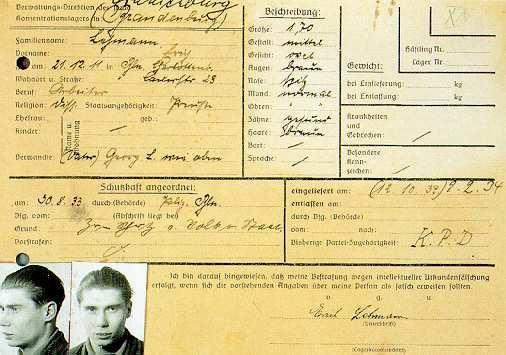 Verwaltungs-Direktion des Staatl.
Konzentrationslagers in
Familienname
Lohmann
Vorname
am 21. 12. 11 in
Wohnort u. Straße: 23
Beruf: Arbeiter
Religion: Diss. Staatsangehörigkeit:
Ehefrau: geb.:
Kinder
Name u. Wohnort
Verwandte: (Vater) Georg L. wie oben
Beschreibung:
Größe: 1,70
Gestalt: mittel
Gesicht: oval
Augen: braun
Nase: spitz
Mund: normal
Ohren: "
Zähne: gesund
Haare: braun
Bart: /
Sprache: /
Gewicht:
bei Einlieferung: kg
bei Entlassung: kg
Krankheiten
und
Gebrechen: /
Besondere
Kenn-
zeichen: /
Häftling Nr.
Lager Nr.
Schutzhaft angeordnet:
am: 30. 8. 33 durch (Behörde)
Vfg. vom: (Abschrift liegt bei)
Grund Volk u. Staat
Vorstrafen:
eingeliefert am: (12. 10. 33) 9. 2. 34
entlassen am:
durch Vfg. (Behörde)
vom:
Bisherige Partei-Zugehörigkeit: K. P. D
Ich bin darauf hingewiesen, daß meine Bestrafung wegen intellektueller Urkundenfälschung
erfolgt, wenn sich die vorstehenden Angaben über meine Person als falsch erweisen sollten.
v. g. u.
Lohmann
(Unterschrift)
(Lagerkommandant)